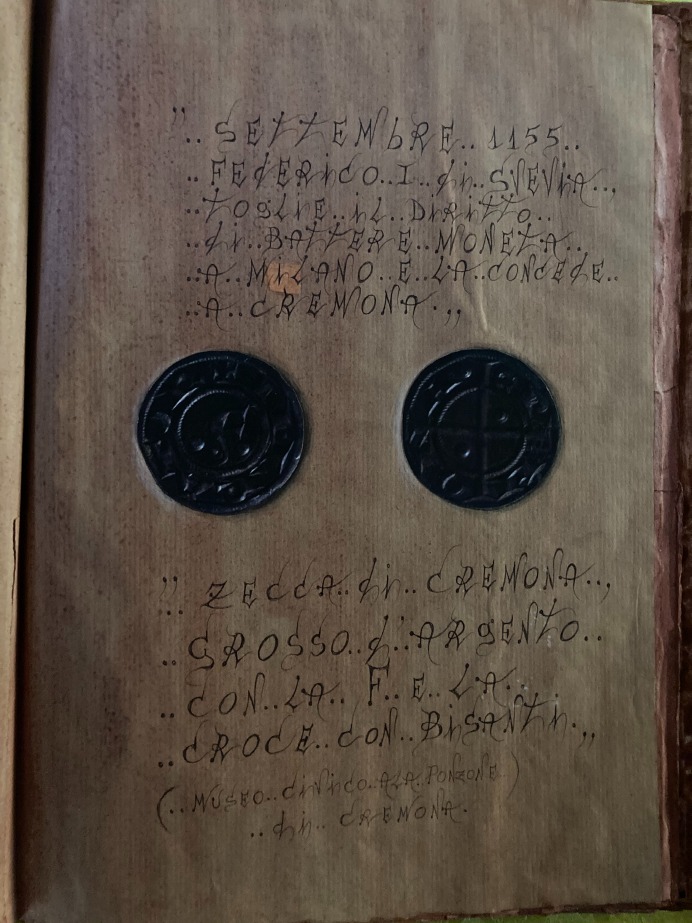 ".. SETTEMbRE.. 1155..
..FEdERiCO..I..di..SVEViA..,
..tOGLiE..iL..DiRitTO..
..di..BATTERE..MONETA..
..A..MiLANO..E..LA..CONCEdE..
..A..CREMONA.,,
".. ZECCA..di..CREMONA..,
..GROSSO..d'.ARGENTO..
..CON..LA..F..E..LA..
..CROCE..CON..BiSANTi.,,
(..MUSEO..CiViCO..ALA..PONZONE)
..di..CREMONA.